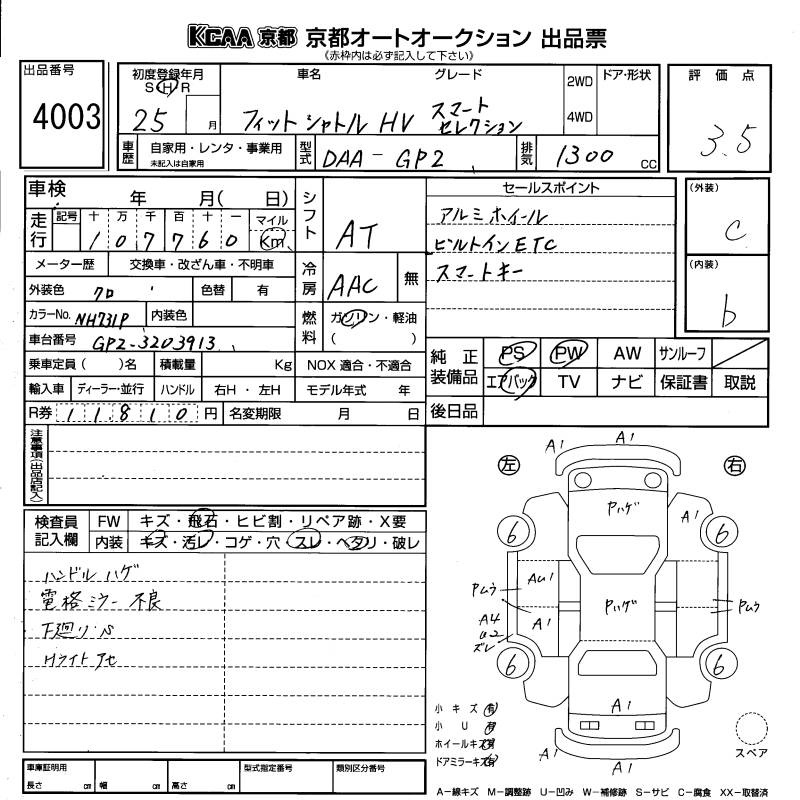 KCAA 京都 京都オートオークション 出品票
(赤枠内は必ず記入して下さい)
出品番号
4003
初度登録年月
S H R
25 月
車名
グレード
フィットシャトル HV スマート
セレクション
2WD
4WD
ドア・形状
評価点
3.5
車歴
自家用・レンタ・事業用
未記入は自家用
型式
DAA-GP2
排気
1300 cc
車検 年 月( 日)
走行
記号 十 万 千 百 十 一 マイル
107760 km
シフト
AT
セールスポイント
アルミホイール
ビルトインETC
スマートキー
(外装)
C
(内装)
b
メーター歴 交換車・改ざん車・不明車
冷房
AAC 無
外装色 クロ 色替 有
カラーNo. NH731P 内装色
燃料
ガソリン・軽油
( )
車台番号 GP2-3203913
乗車定員( )名 積載量 Kg NOX 適合・不適合
輸入車 ディーラー・並行 ハンドル 右H・左H モデル年式 年
R券 11810円 名変期限 月 日
純正装備品
PS PW AW サンルーフ
エアバック TV ナビ 保証書 取説
後日品
注意事項(出品店記入)
検査員記入欄
FW キズ・飛石・ヒビ割・リペア跡・X要
内装 キズ・汚レ・コゲ・穴 スレ・ヘタリ・破レ
ハンドル ハゲ
電格ミラー 不良
下廻り・S
Hライト アセ
左
右
A1
A1
Pハゲ
A1
6
6
AU1
Pムラ
A1
Pハゲ
Pムラ
A4
U2
ズレ
6
6
A1
A1
A1
小キズ(有)
小U(有)
ホイールキズ(有)
ドアミラーキズ(有)
スペア
車庫証明用
長さ cm 幅 cm 高さ cm
型式指定番号
類別区分番号
A-線キズ M-調整跡 U-凹み W-補修跡 S-サビ C-腐食 XX-取替済